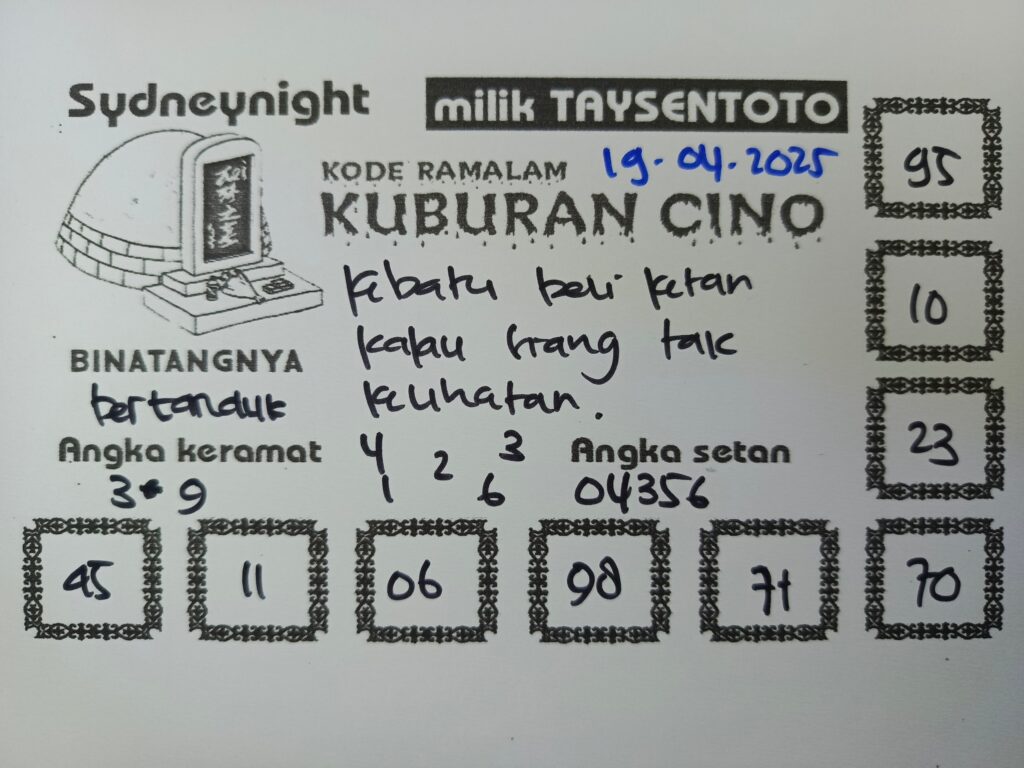 Sydneynight
milik TAYSENTOTO
KODE RAMALAM 19.04.2025
KUBURAN CINO
kebatu beli ketan
kalau hrang tak
kelihatan.
BINATANGNYA
bertanduk
Angka keramat
3*9
4 3
2
1 6
Angka setan
04356
95
10
23
45 11 06 98 71 70